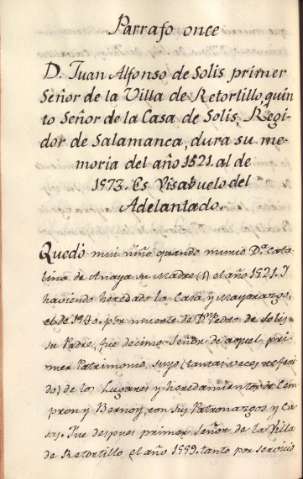 Parrafo once
D. Juan Alfonso de Solis primer
Señor de la Villa de Retortillo, quin
to Señor de la Casa de Solis, Regi
dor de Salamanca, dura su me-
moria del año 1521. al de
1573. Es Visabuelo del
Adelantado.
Quedò mui niño quando murio Dª. Cata
lina de Anaya su Madre (1) el año 1521. I
haviendo heredado la Casa, y Mayorazgo,
el de por muerte de Dn. Pedro de Solis
su Padre, fue decimo Señor de aquel pri-
mer Patrimonio, suyo (tantas veces referi
do) de los Lugares y heredamientos de Cem
pron y Bernoy, con sus Patronazgos y Ca
sas. Fue despues primer Señor de la Villa
de Retortillo el año 1559. tanto por servicio